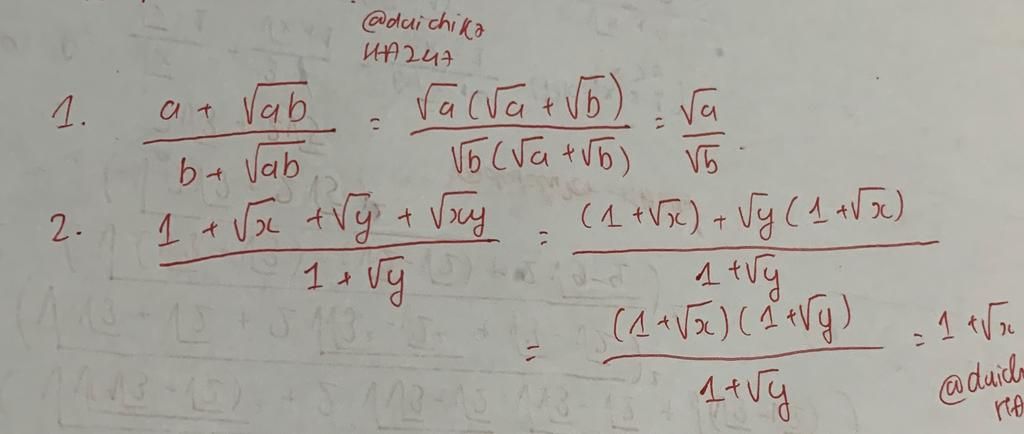 @daichika
HA247
1. (a + √ab)/(b + √ab) = (√a(√a + √b))/(√b(√a + √b)) = √a/√b.
2. (1 + √x + √y + √xy)/(1 + √y) = ((1 + √x) + √y(1 + √x))/(1 + √y)
= ((1 + √x)(1 + √y))/(1 + √y) = 1 + √x